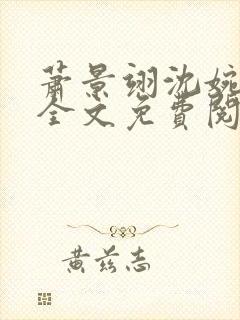 萧景翊沈婉
全文免費閱
黄兹志